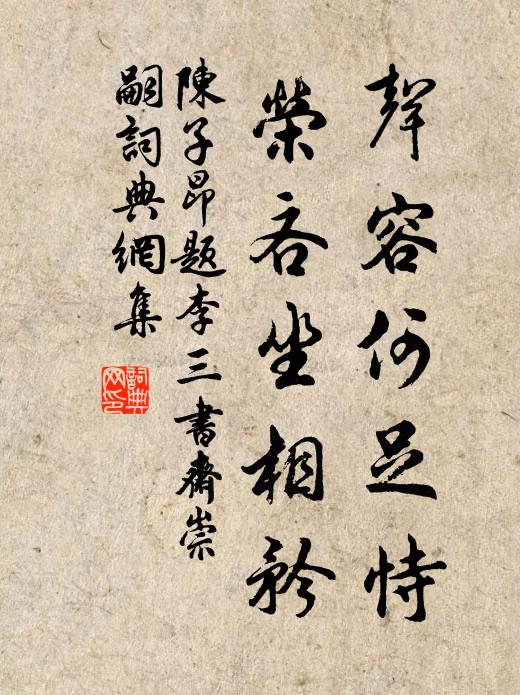 聲容何足恃
榮吝坐相矜
陳子昂題李三書齋崇
嗣詞典網集
詞典
网印